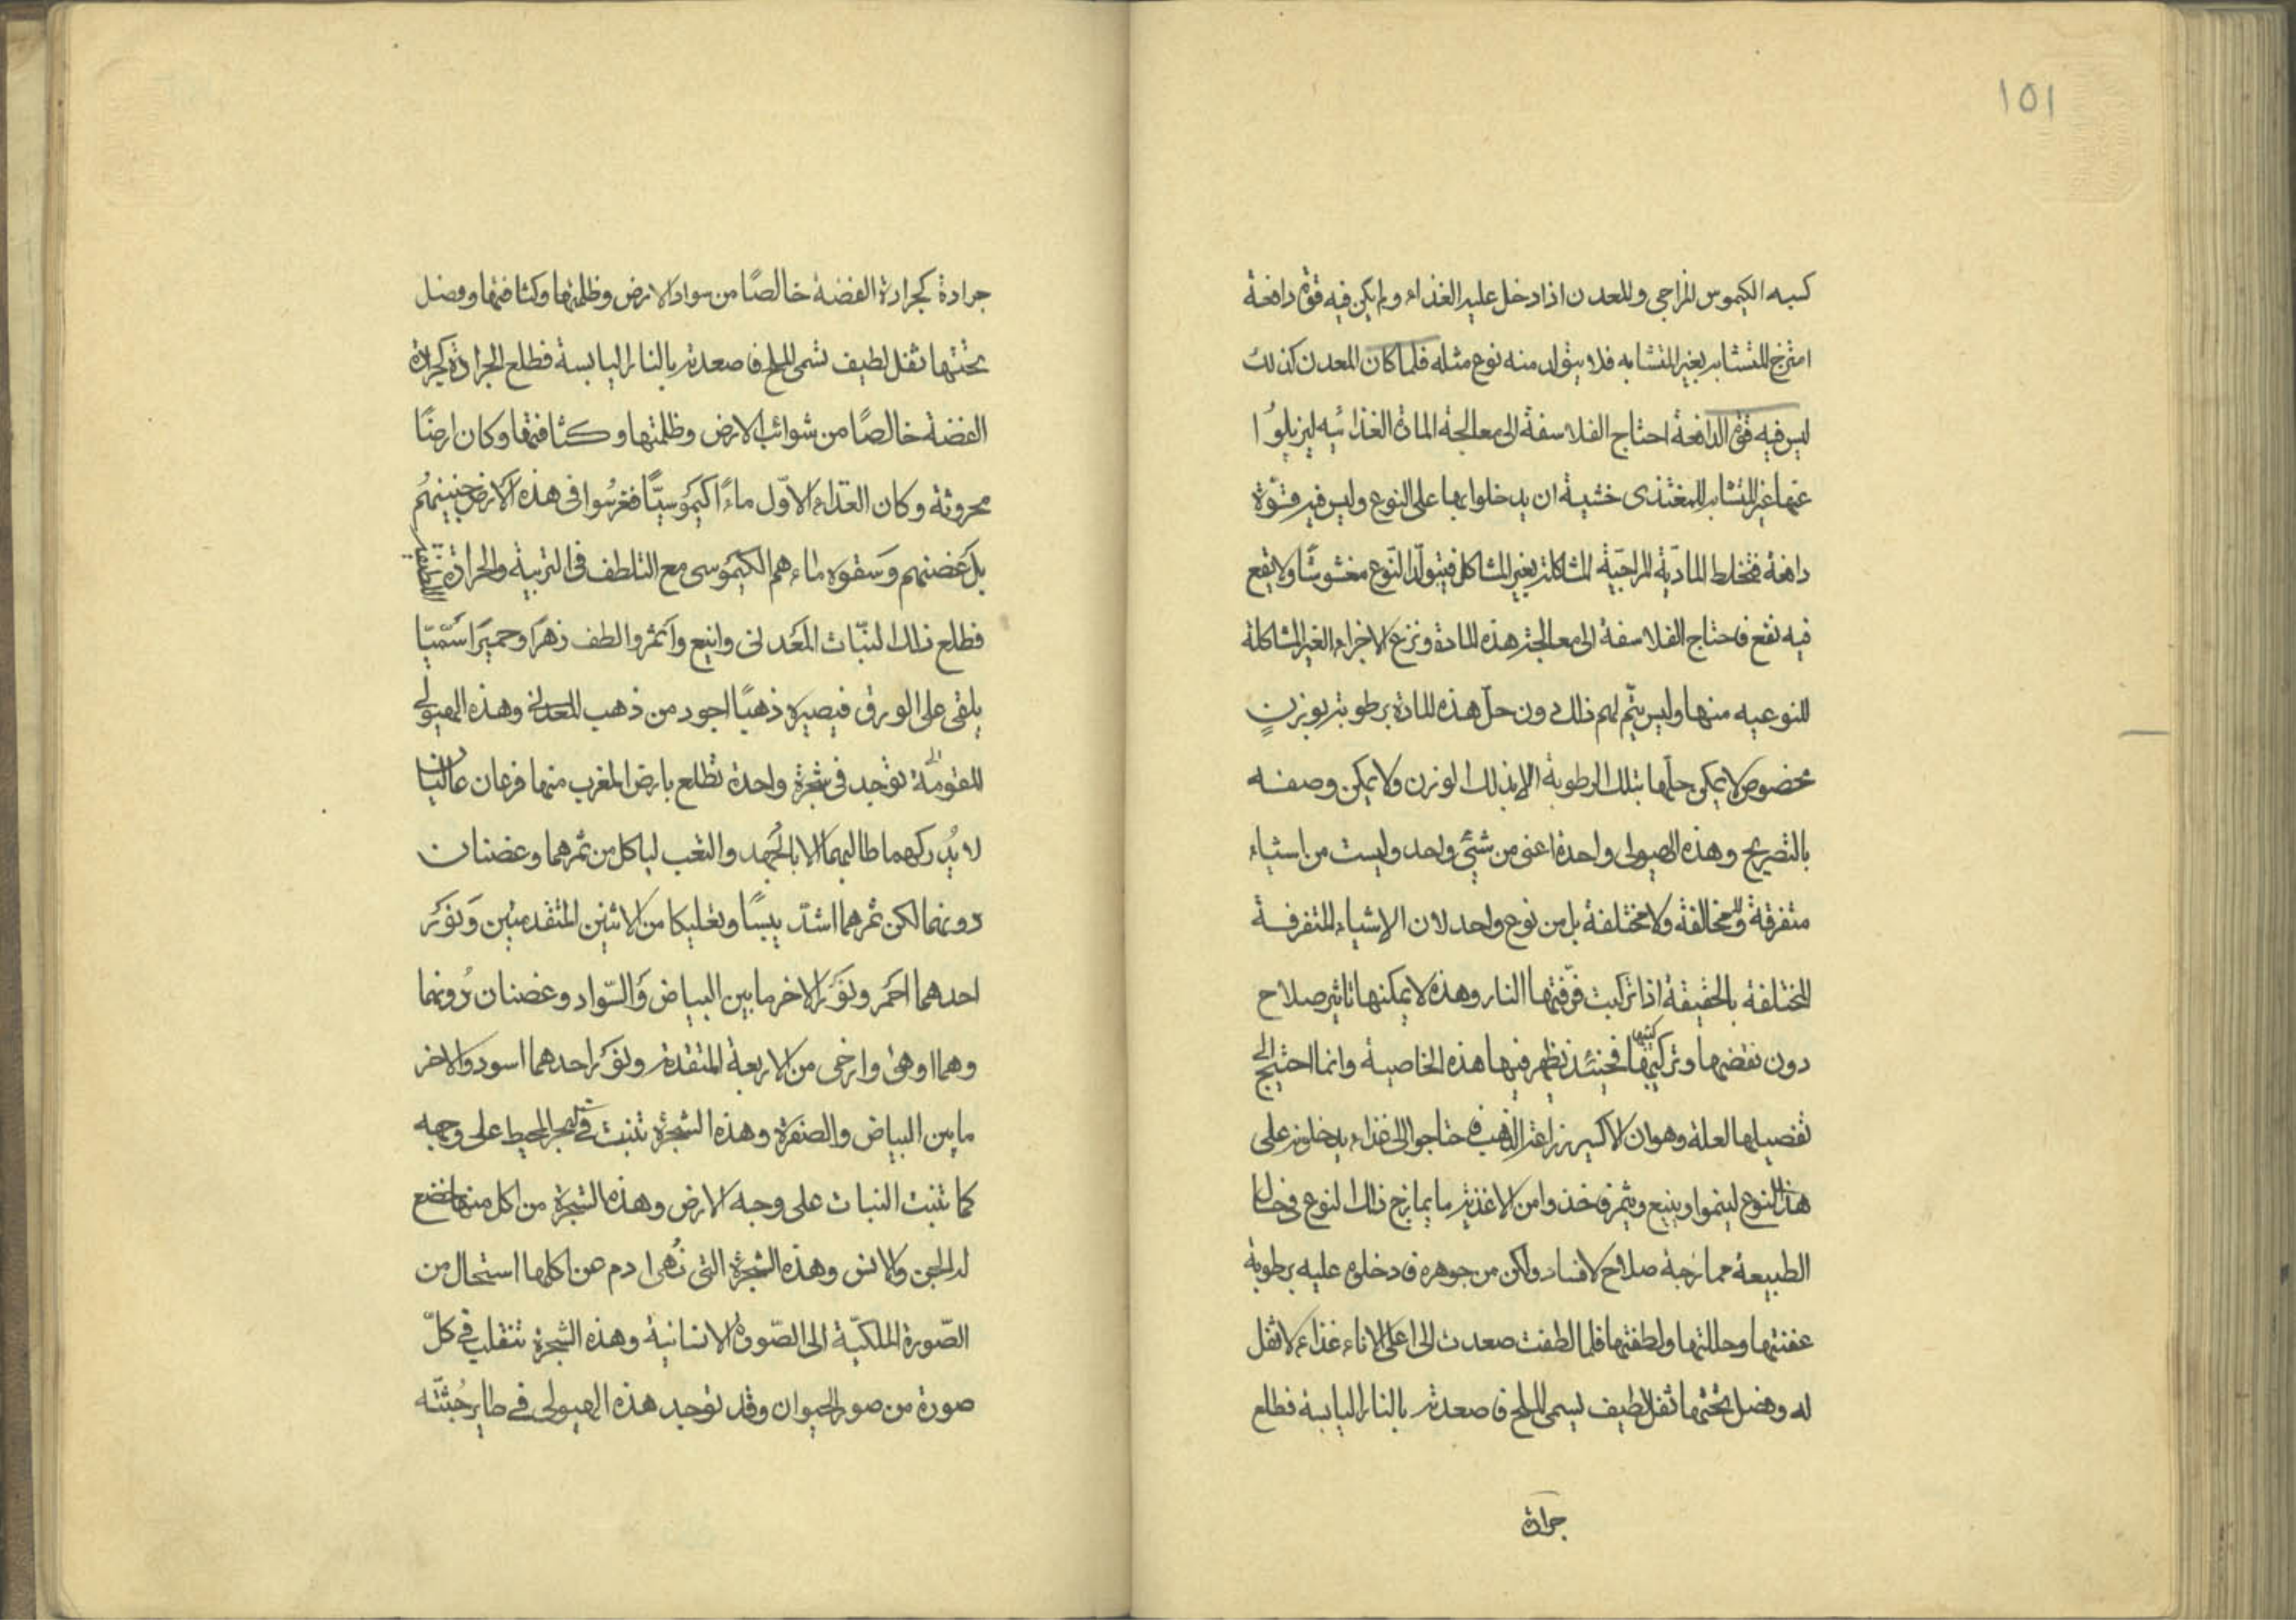 ١٥١
كسبه الكيموس المزاجي والمعدن اذا دخل عليه الغذاء ولم يكن فيه قوة دافعة
امتزج المتشابه بغير المتشابه فلا يتولد منه نوع مثله فلما كان المعدن كذلك
ليس فيه قوة الدافعة احتاج الفلاسفة الى معالجة المادة الغذائيه ليزيلوا
عنها غير المتشابه للمغتذى خشية ان يدخلوا بها على النوع وليس فيه قوة
دافعة فتخلط المادّية المزاجيّة المشاكلة بغير المشاكل فيتولّد النّوع مغشوشًا ولا يقع
فيه نفع فاحتاج الفلاسفة الى معالجة هذه المادة ونزع الاجزاء الغير المشاكلة
للنوعيه منها وليس يتّم لهم ذلك دون حلّ هذه المادة برطوبة بوزنٍ
مخصوص لا يمكن حلّها بتلك الرطوبة الا بذلك الوزن ولا يمكن وصفه
بالتصريح وهذه الهيولى واحدة اعنى من شئ واحد وليست من اشياء
متفرقة ولا مخالفة ولا مختلفة بل من نوع واحد لان الاشياء المتفرفة
المختلفة بالحقيقة اذا تركبت فرّقتها النار وهذه لا يمكنها تاثير صلاح
دون نقضها وتركيبها فحينئذ تظهر فيها هذه الخاصية وانما احتيج الى
تفصيلها العلة وهو ان الاكسير زراعة الذهب فاحتاجوا الى غذاء يدخلونه على
هذا النوع لينموا وينبع ويثمر فاخذوا من الاغذية ما يمازج ذلك النوع في حال
الطبيعة ممازجة صلاح لا فساد ولكن من جوهره فادخلوا عليه برطوبة
عفنتها وحللتها ولطفتها فلما لطفت صعدت الى اعلى الاناء غذاء لا ثفل
له وفضل تحتها ثفل لطيف يسمى الملح فاصعدته بالنار اليابسة فطلع
جرادة
جرادة كجرادة الفضة خالصًا من سواد الارض وظلمتها وكثافتها وفضل
تحتها ثفل لطيف تسمى الملح فاصعدته بالنار اليابسة فطلع الجرادة كجرادة
الفضة خالصًا من شوائب الارض وظلمتها وكثافتها وكان ارضًا
محروثة وكان الغذاء الاوّل ماءً اكيموسيًّا فغرسُوا فى هذه الارض جنينهُم
بل غضنهم وسقوه ماءهم الكيموسى مع التلطف فى التربية والحرادة
فطلع ذلك النبّات المعدنى وانبع وأثمر والطف زهرًا وحميرًا سَمّيّا
يلقى على الورق فيصيره ذهبًا اجود من ذهب المعدنى وهذه الهيولى
المقومة توجد فى شجرة واحدة تطلع بارض المغرب منها فرعان عاليان
لا يُدركهما طالبهما الا بالجُهد والتعب لياكل من ثمرهما وغضنان
دونهما لكن ثمرهما اشدّ يبسًا وتعليكا من الاثنين المتقدمين ونَوَرُ
احدهما احمر ونَوَر الاخر ما بين البياض والسّواد وغضنان دُونهما
وهما اوهى وارخى من الاربعة المتقدمة ونوَر احدهما اسود والاخر
ما بين البياض والصفرة وهذه الشجرة تنبت في البحر المحيط على وجهه
كما تنبت النبات على وجه الارض وهذه الشجرة من اكل منها خضع
له الجن والانس وهذه الشجرة التى نُهى ادم عن اكلها استحال من
الصّورة الملكيّة الى الصّورة الانسانية وهذه الشجرة تنقلب في كلّ
صورة من صور الحيوان وقد توجد هذه الهيولى في طاير جُثّته